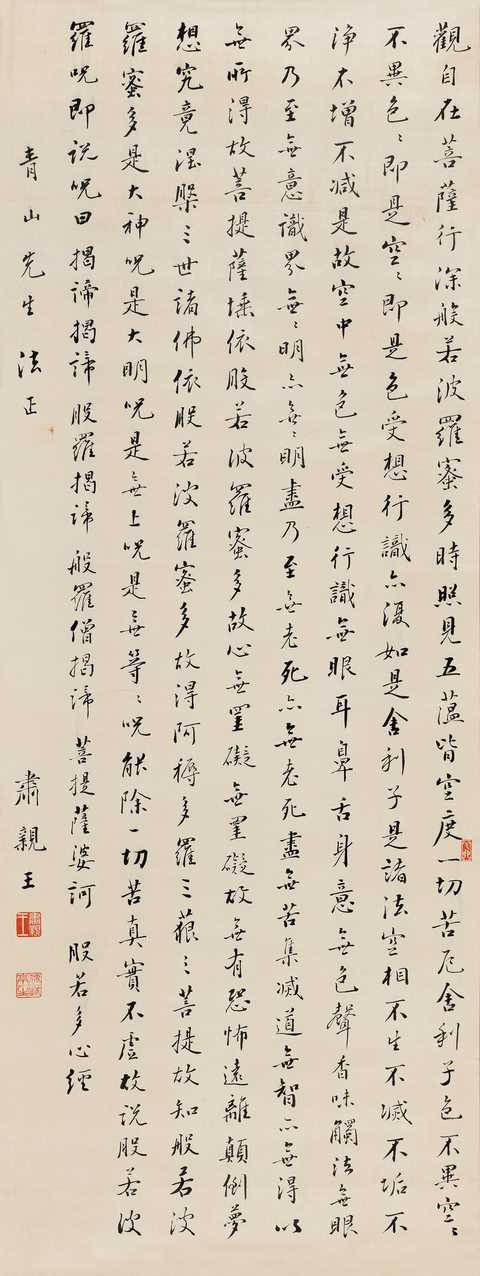 觀自在菩薩行深般若波羅蜜多時照見五蘊皆空度一切苦厄舍利子色不異空〻
不異色〻即是空〻即是色受想行識亦復如是舍利子是諸法空相不生不滅不垢不
淨不增不減是故空中無色無受想行識無眼耳鼻舌身意無色聲香味觸法無眼
界乃至無意識界無〻明亦無〻明盡乃至無老死亦無老死盡無苦集滅道無智亦無得以
無所得故菩提薩埵依般若波羅蜜多故心無罣礙無罣礙故無有恐怖遠離顛倒夢
想究竟涅槃三世諸佛依般若波羅蜜多故得阿耨多羅三藐三菩提故知般若波
羅蜜多是大神呪是大明呪是無上呪是無等〻呪能除一切苦真實不虛故說般若波
羅呪即說呪曰揭諦揭諦般羅揭諦般羅僧揭諦菩提薩婆訶 般若多心經
青山先生法正
肅親王